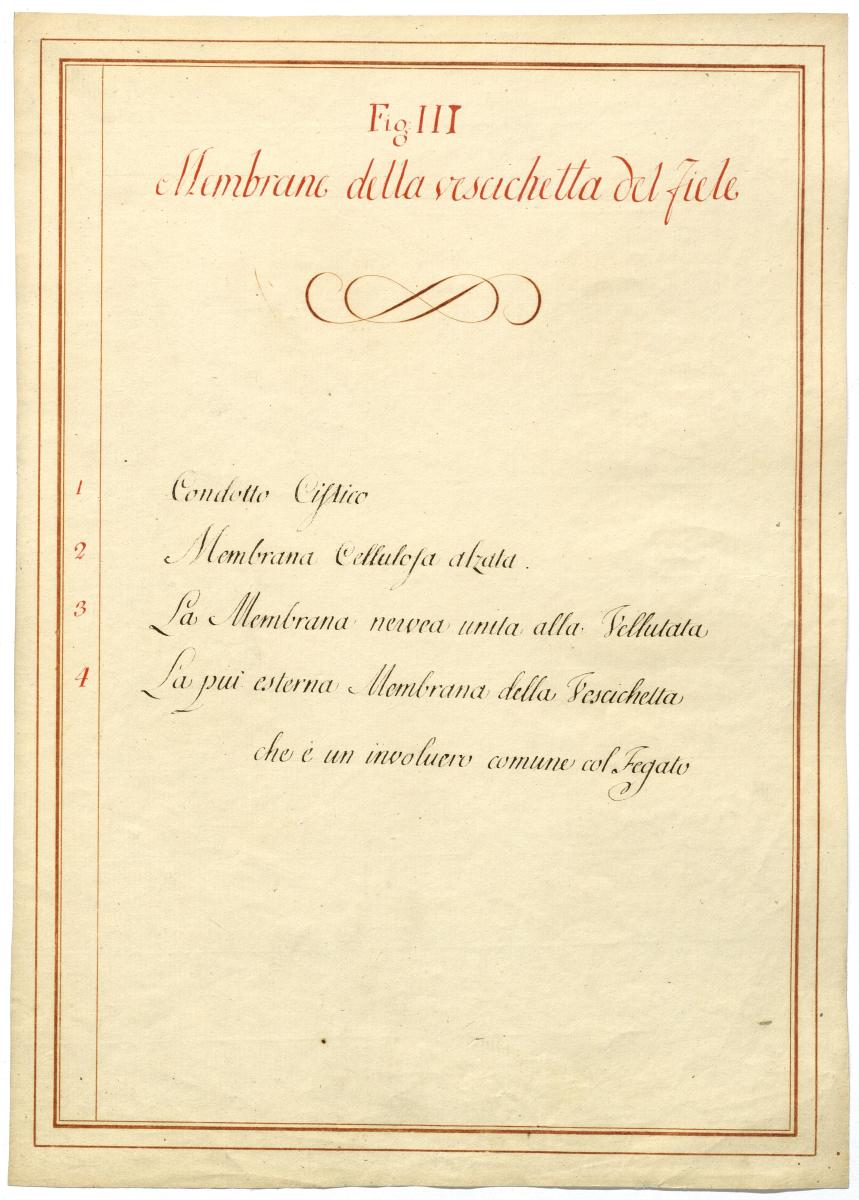 Fig. III
Membrane della vescichetta del Fiele
1 Condotto Cistico
2 Membrana Cellulosa alzata.
3 La Membrana nervea unita alla Vellutata
4 La piu esterna Membrana della Vescichetta
che è un involucro comune col Fegato